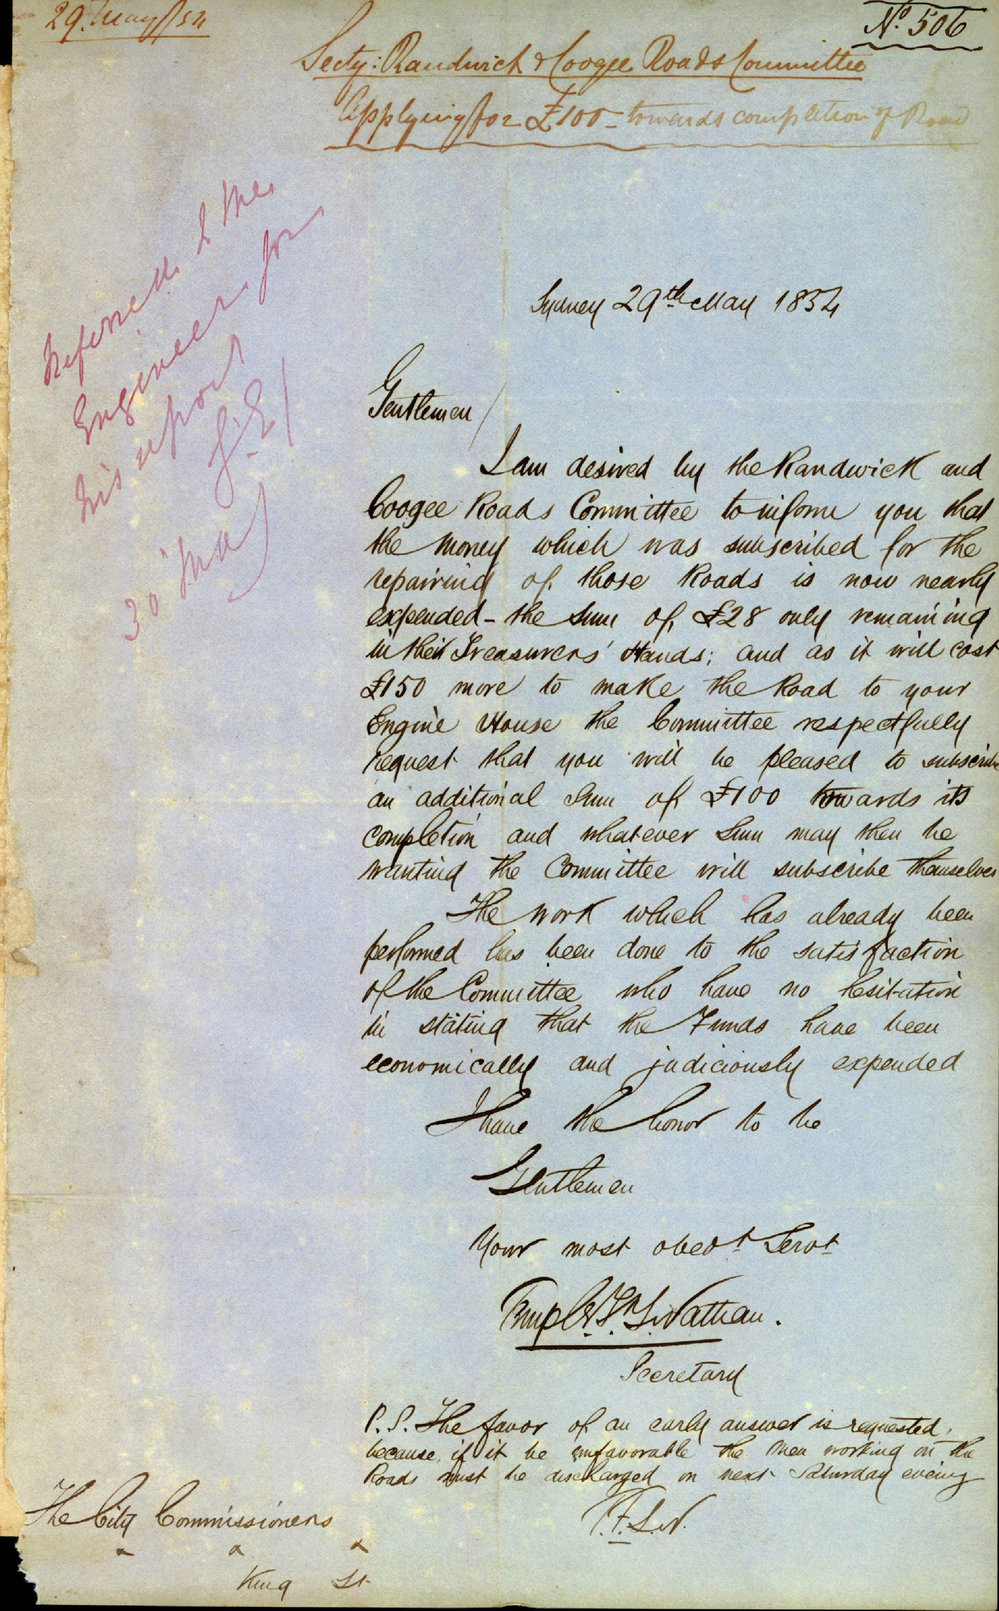 29. May/54
No. 506
Secty: Randwich & Coogee Roads Committee
Applying for £100 - towards completion of Road
Referred to the
Engineer for
his report
30 May
Sydney 29th May 1854
Gentlemen/
I am desired by the Randwick and
Coogee Roads Committee to inform you that
the money which was subscribed for the
repairing of those Roads is now nearly
expended - the sum of £28 only remaining
in their Treasurers' Hands; and as it will cost
£150 more to make the Road to your
Engine House the Committee respectfully
request that you will be pleased to subscribe
an additional Sum of £100 towards its
completion and whatever Sum may then be
wanting the Committee will subscribe themselves
The work which has already been
performed has been done to the satisfaction
of the Committee who have no hesitation
in stating that the Funds have been
economically and judiciously expended
I have the honor to be
Gentlemen
Your most obedt Servt
Nathan.
Secretary
P.S. The favor of an early answer is requested,
because, if it be unfavorable the men working on the
Roads must be discharged on next Saturday evening
The City Commissioners
King St